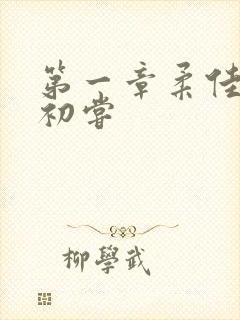 第一章柔佳
初嘗
柳學武